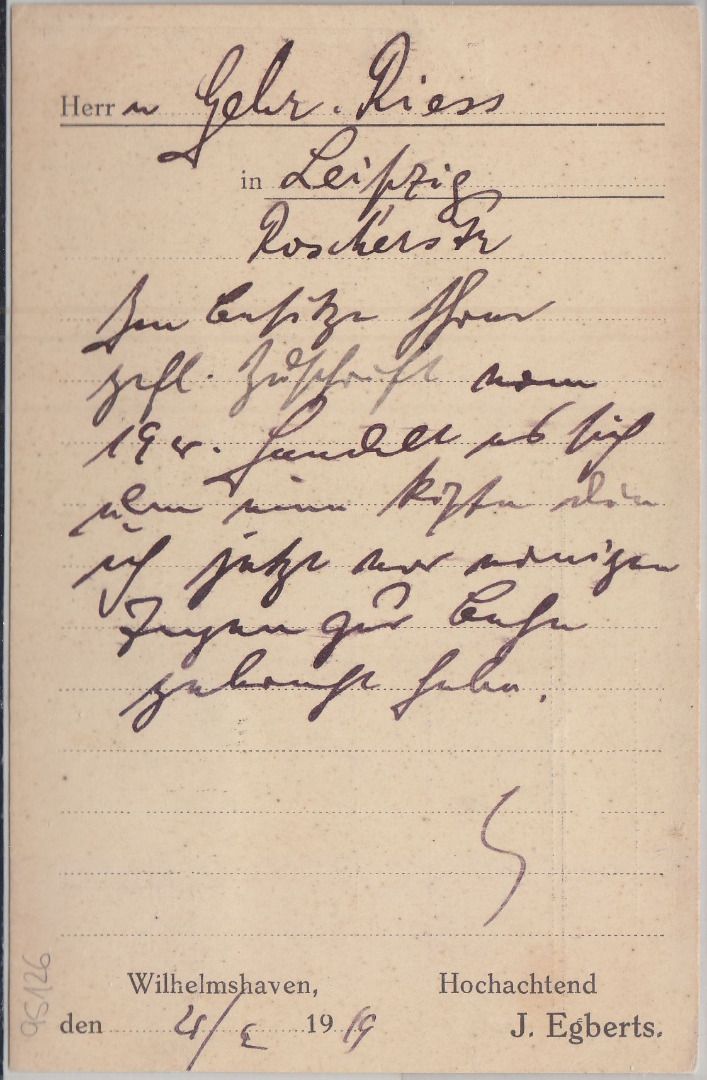 Herrn Gebr. Riess
in Leipzig
Roscherstr
Im Besitze Ihrer
gefl. Zuschrift vom
19 cr. handelt es sich
um eine Kiste die
ich jetzt vor einigen
Tagen zur Bahn
gebracht habe.
Wilhelmshaven, Hochachtend
den 21/ 1919 J. Egberts.
95126